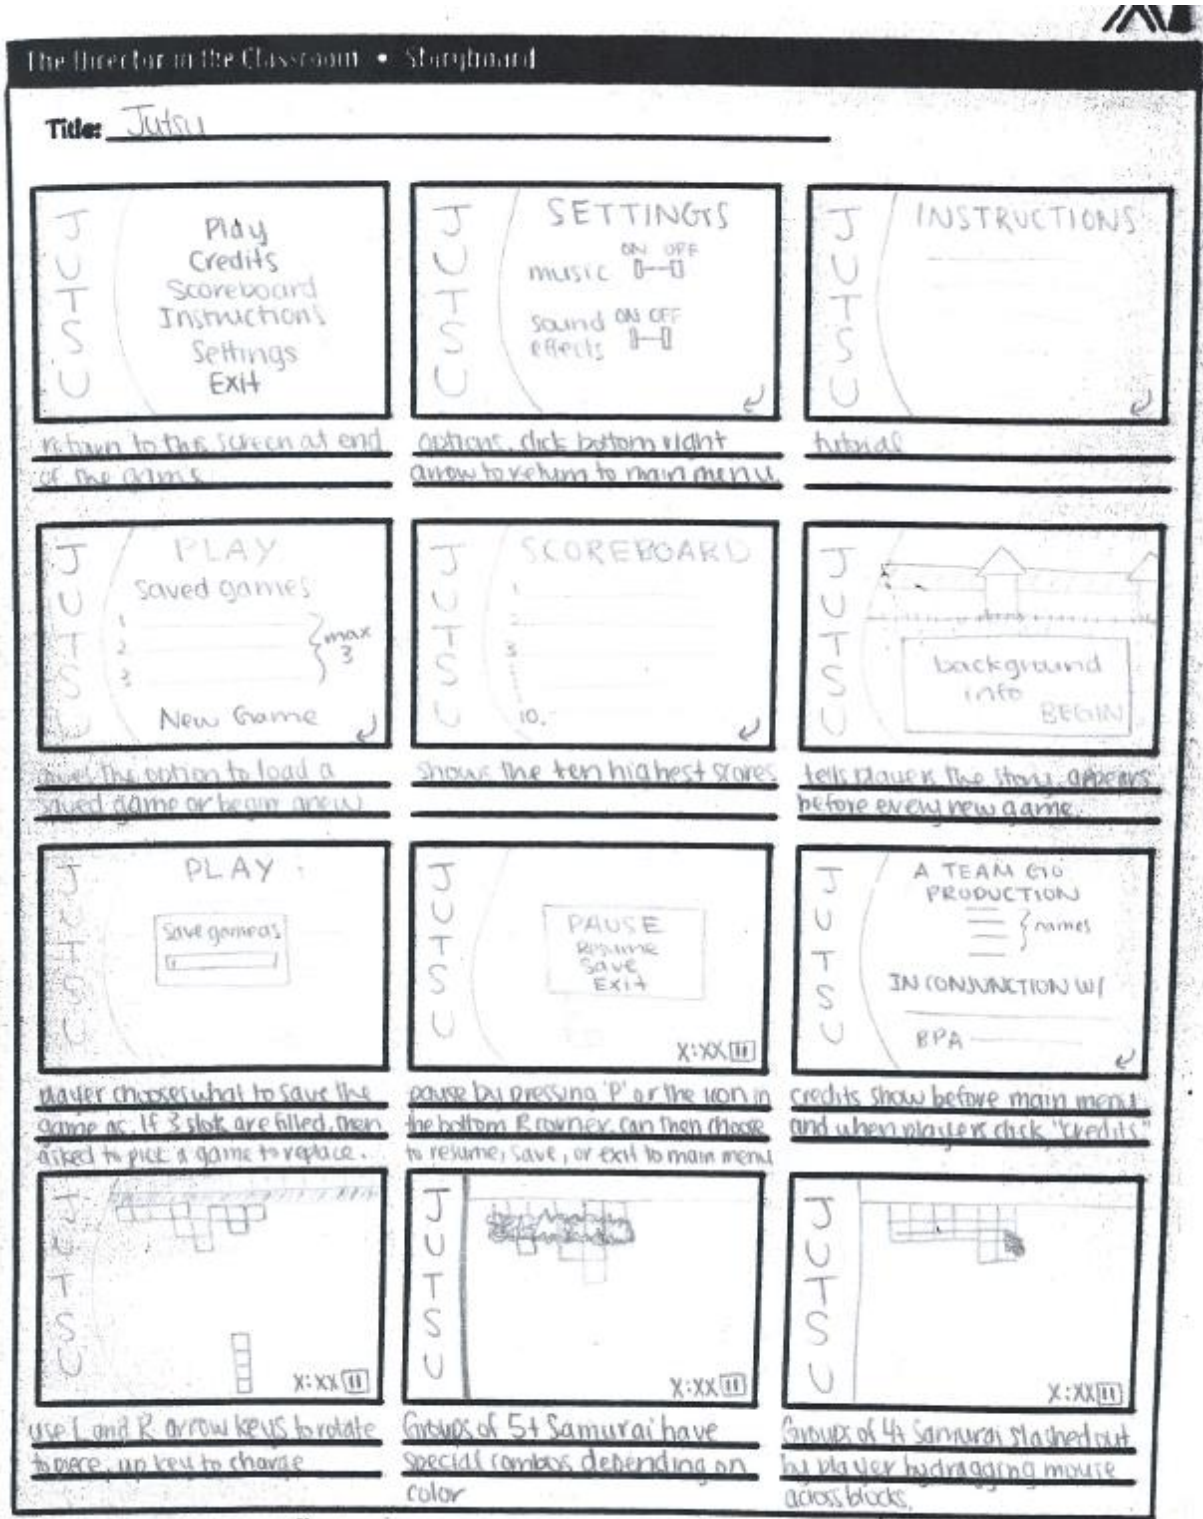 The Director in the Classroom • Storyboard
Title: Jutsu
JUTSU
Play
Credits
Scoreboard
Instructions
Settings
Exit
return to this screen at end
of the game
JUTSU
SETTINGS
ON OFF
music
sound ON OFF
effects
options, click bottom right
arrow to return to main menu
JUTSU
INSTRUCTIONS
tutorial
JUTSU
PLAY
Saved games
1
2
3
max
3
New Game
gives the option to load a
saved game or begin anew
JUTSU
SCOREBOARD
1
2
3
10.
shows the ten highest scores
JUTSU
background
info
BEGIN
tells players the story, appears
before every new game.
JUTSU
PLAY
Save game as
player chooses what to save the
game as. If 3 slots are filled, then
asked to pick a game to replace.
JUTSU
PAUSE
Resume
Save
Exit
X:XX
pause by pressing 'P' or the icon in
the bottom R corner, can then choose
to resume, save, or exit to main menu
JUTSU
A TEAM GIO
PRODUCTION
names
IN CONJUNCTION W/
BPA
credits show before main menu
and when players click "credits"
JUTSU
X:XX
use L and R arrow keys to rotate
to piece, up key to charge
JUTSU
X:XX
Groups of 5+ Samurai have
special combos depending on
color
JUTSU
X:XX
Groups of 4+ Samurai slashed out
by player by dragging mouse
across blocks.